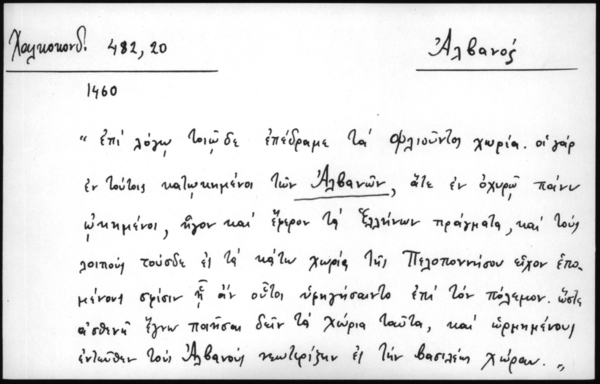 Χαλκοκονδ. 482, 20
Ἀλβανός
1460
" ἐπὶ λόγῳ τοιῷδε ἐπέδραμε τὰ Φλιοῦντος χωρία. οἱ γὰρ
ἐν τούτοις κατῳκημένοι τῶν Ἀλβανῶν, ἅτε ἐν ὀχυρῷ πάνυ
ᾠκημένοι, ἦγον καὶ ἔφερον τὰ Ἑλλήνων πράγματα, καὶ τοὺς
λοιποὺς τούσδε ἐς τὰ κάτω χωρία τῆς Πελοποννήσου εἶχον ἑπο-
μένους σφίσιν ᾗ ἂν οὗτοι ὑφηγήσαιντο ἐπὶ τὸν πόλεμον. ὥστε
ἀσθενῆ ἔγνω ποιῆσαι δεῖν τὰ χωρία ταῦτα, καὶ ὡρμημένους
ἐντεῦθεν τοὺς Ἀλβανοὺς νεωτερίζειν ἐς τὴν βασιλέως χώραν. "